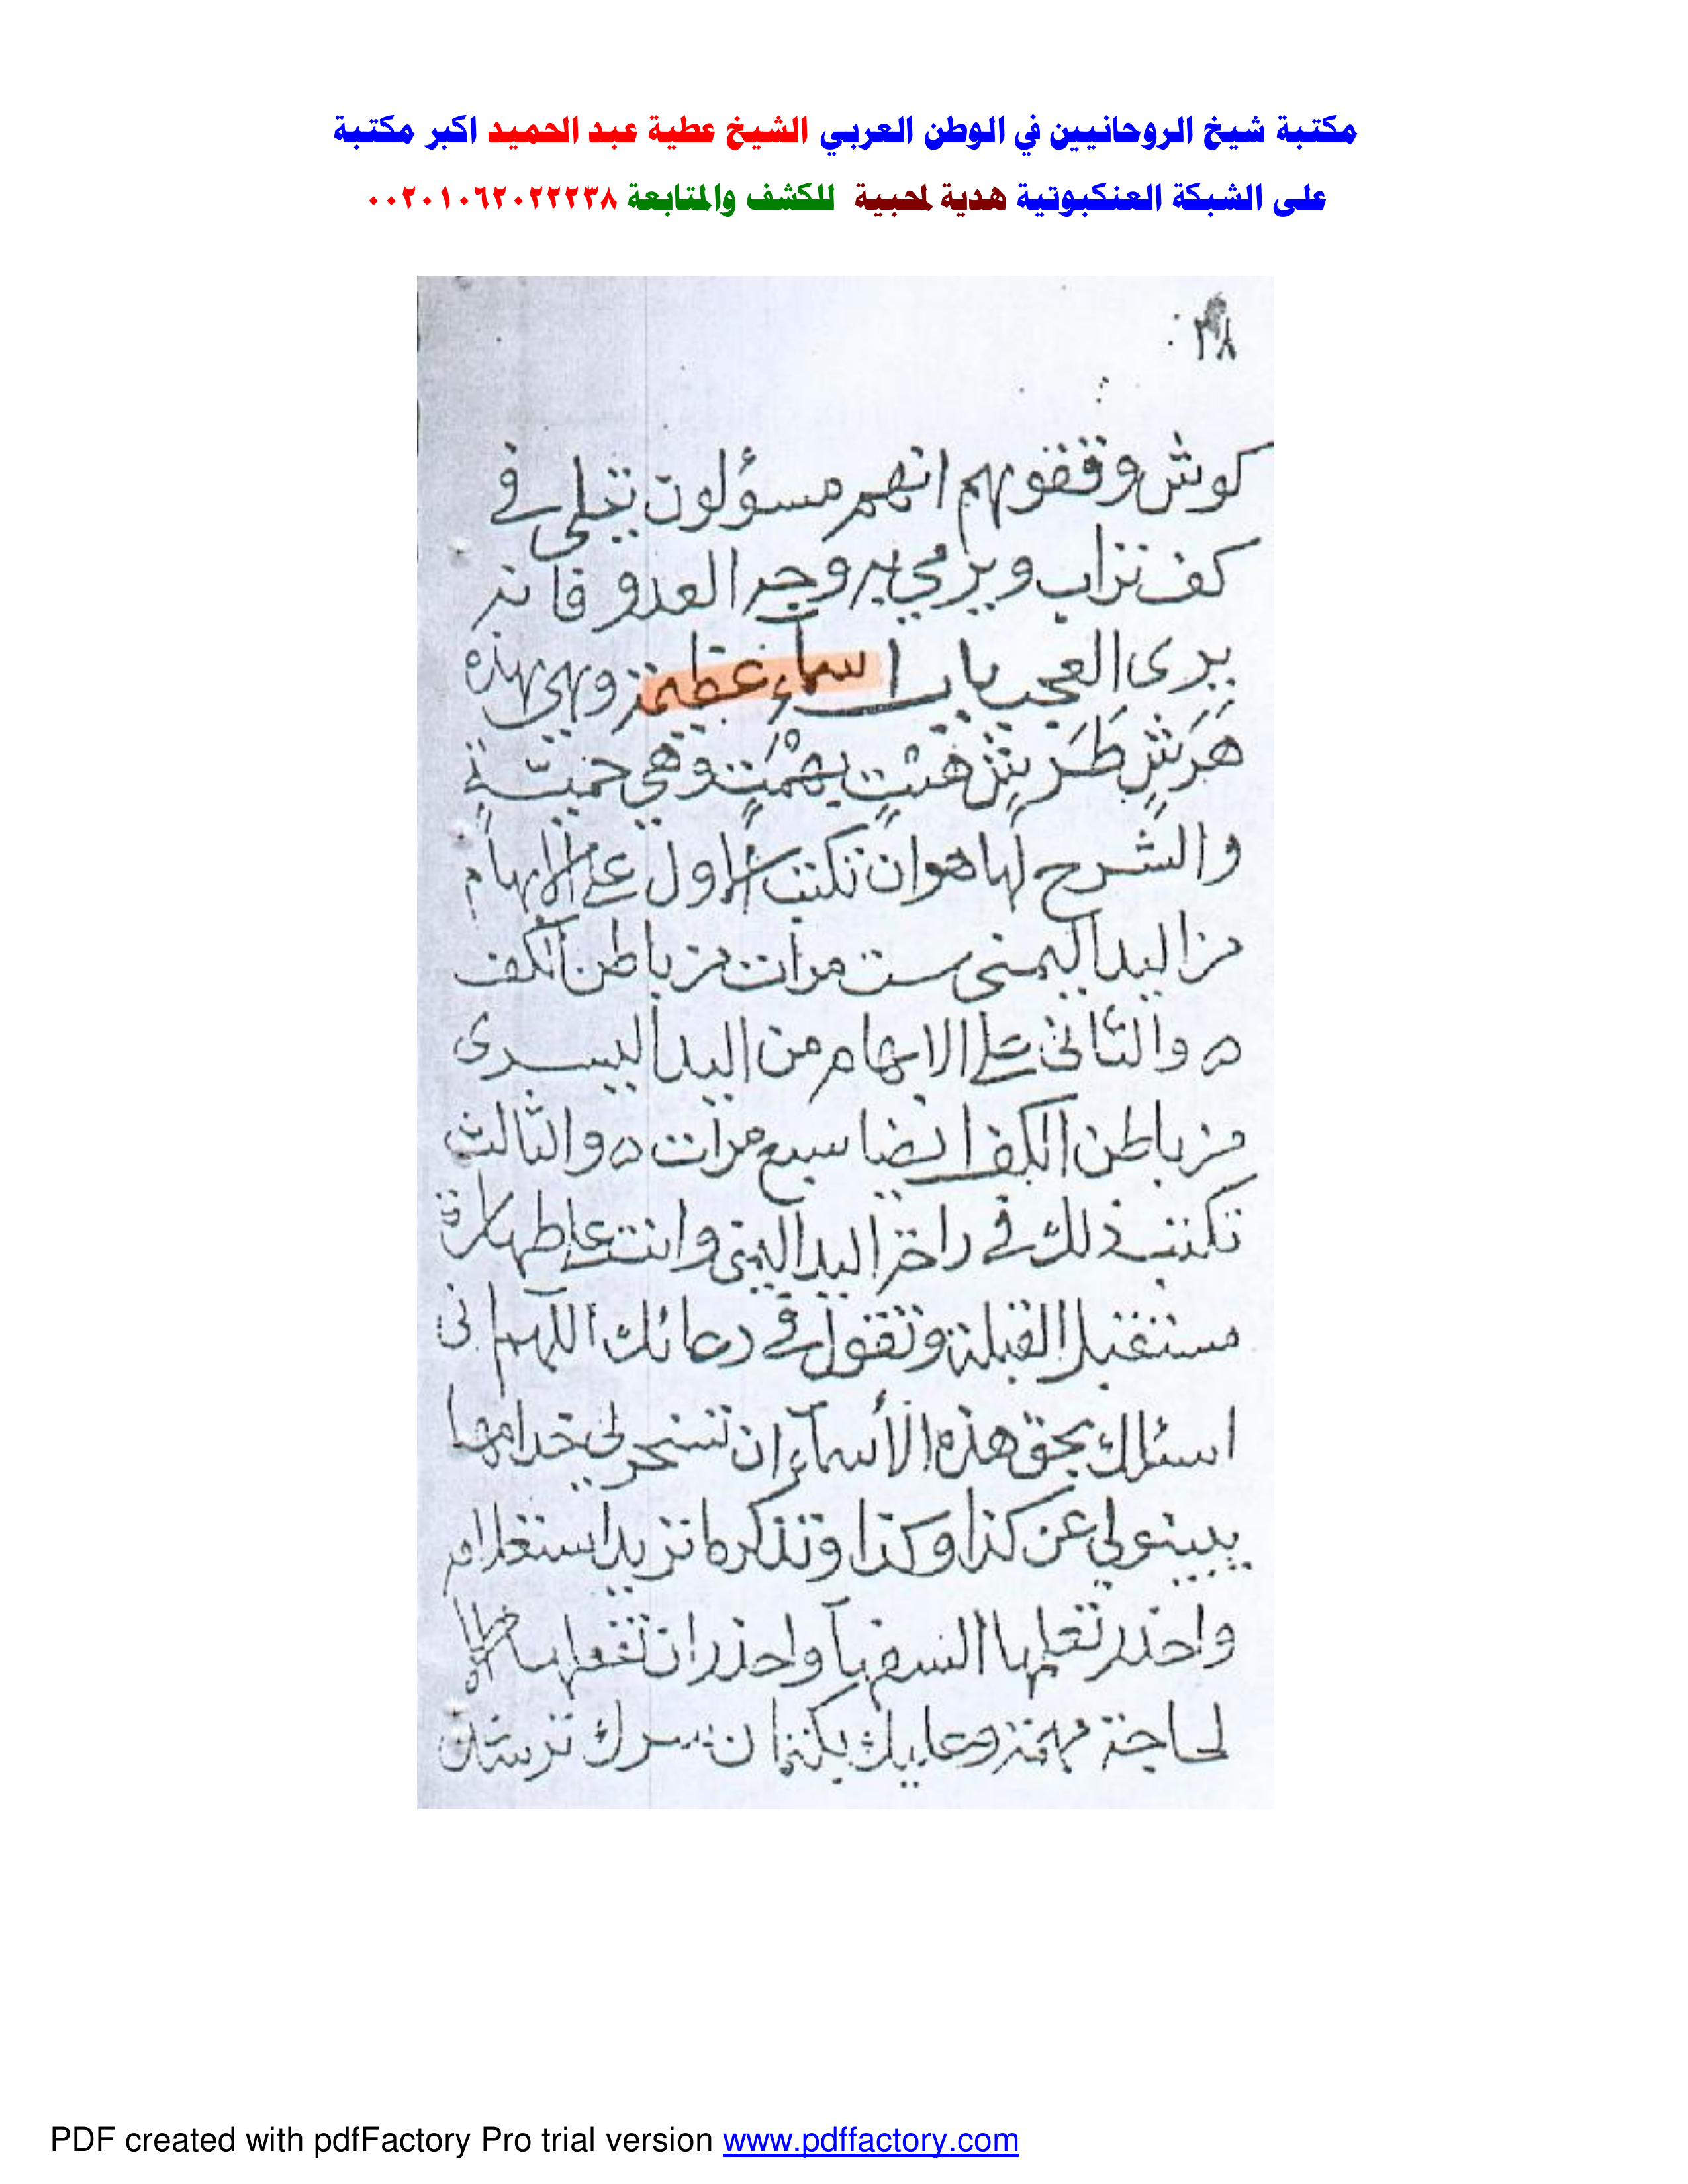 مكتبة شيخ الروحانيين في الوطن العربي الشيخ عطية عبد الحميد اكبر مكتبة
على الشبكة العنكبوتية هدية لمحبية للكشف والمتابعة ٠٠٢٠١٠٦٢٠٢٢٢٣٨
٢٨
كوش وقفوهم انهم مسؤلون تتلى في
كف تراب ويرمي به وجه العدو فانه
يرى العجب باب اسماء عظيمة وهي هذه
هَرَشٍ طَرَيشٍ هَشتٍ بهْمَتٍ وهي خمسة
والشرح لها هو ان تكتب الاول على الابهام
من اليد اليمنى ست مرات من باطن الكف
ه والثاني على الابهام من اليد اليسرى
من باطن الكف ايضا سبع مرات ه والثالث
تكتب ذلك في راحة اليد اليمنى وانت على طهارة
مستقبل القبلة وتقول في دعائك اللهم اني
اسئلك بحق هذه الأسماء ان تسخر لي خدامها
يبينو لي عن كذا وكذا وتذكر ما تريد استعلام
واحذر تعلمها السفهآ واحذر ان تفعلها الا
لحاجة مهمة وعليك بكتمان سرك ترشد
PDF created with pdfFactory Pro trial version www.pdffactory.com